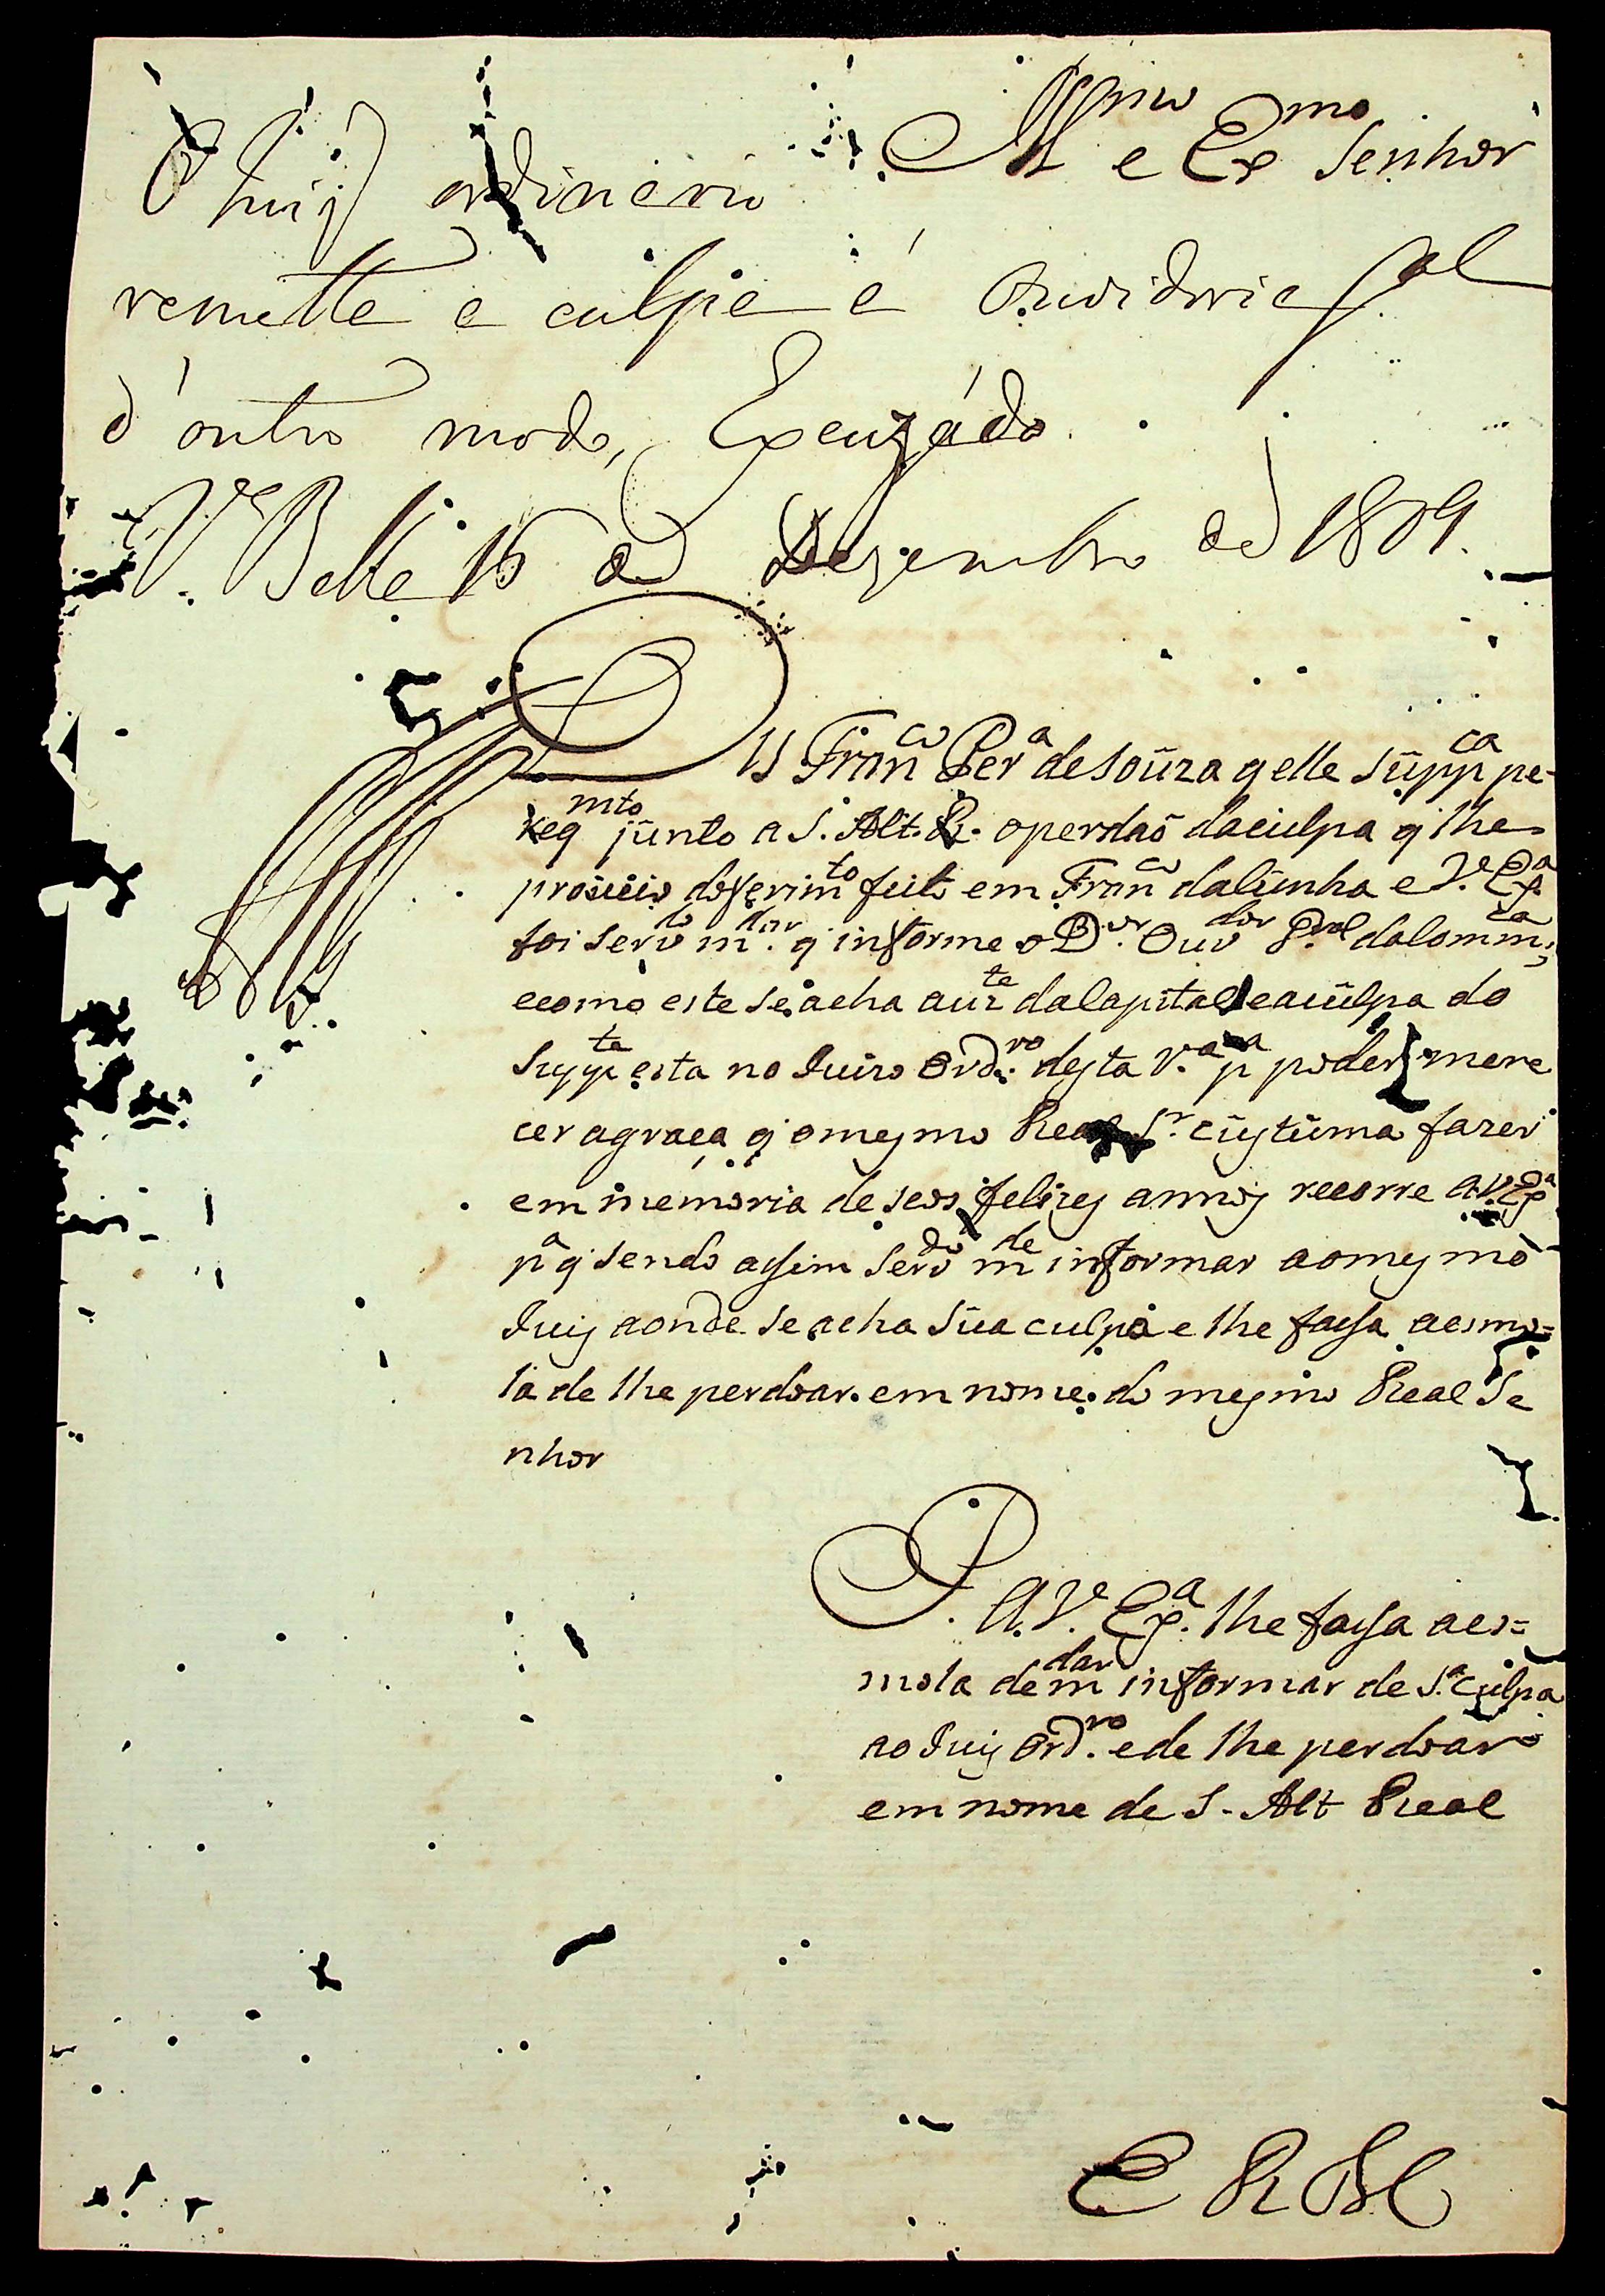 Illmo e Exmo Senhor
O Juiz ordinario
remette a culpa á Ouvidoria Gal
d'outro modo, Excuzádo.
Va Bella 15 de Dezembro de 1809.
Diz Franco Pera de Souza q elle Suppca pe-
Reqmto junto a S. Alt. R. o perdaõ da culpa q lhe
do ferimto feito em Franco da Cunha e V. Exa
foi servdo mdar q informe o Dor Ouvdor Gral da Comca;
e como este se acha auzte da Capital e a culpa do
Suppte esta no Juizo Ordro desta Va pa poder mere
cer a graça q o mesmo Real Sr custuma fazer
em memoria de seos felizes annos recorre a V. Exa
pa q sendo assim servdo mde informar ao mesmo
Juiz aonde se acha sua culpa e lhe fassa a esmo=
la de lhe perdoar em nome do mesmo Real Se
nhor
P. A V. Exa. lhe fassa a es=
mola de mdar informar de Sa culpa
ao Juiz Ordro. e de lhe perdoar
em nome de S. Alt Real
E R Mce